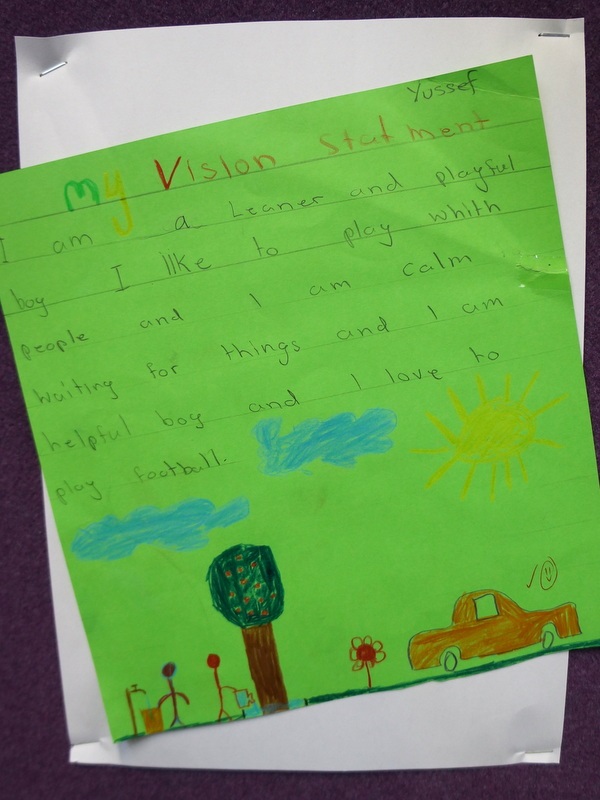 Yussef
My Vision Statment
I am a Leaner and playful
boy I like to play whith
people and I am calm
waiting for things and I am
helpful boy and I love to
play football.